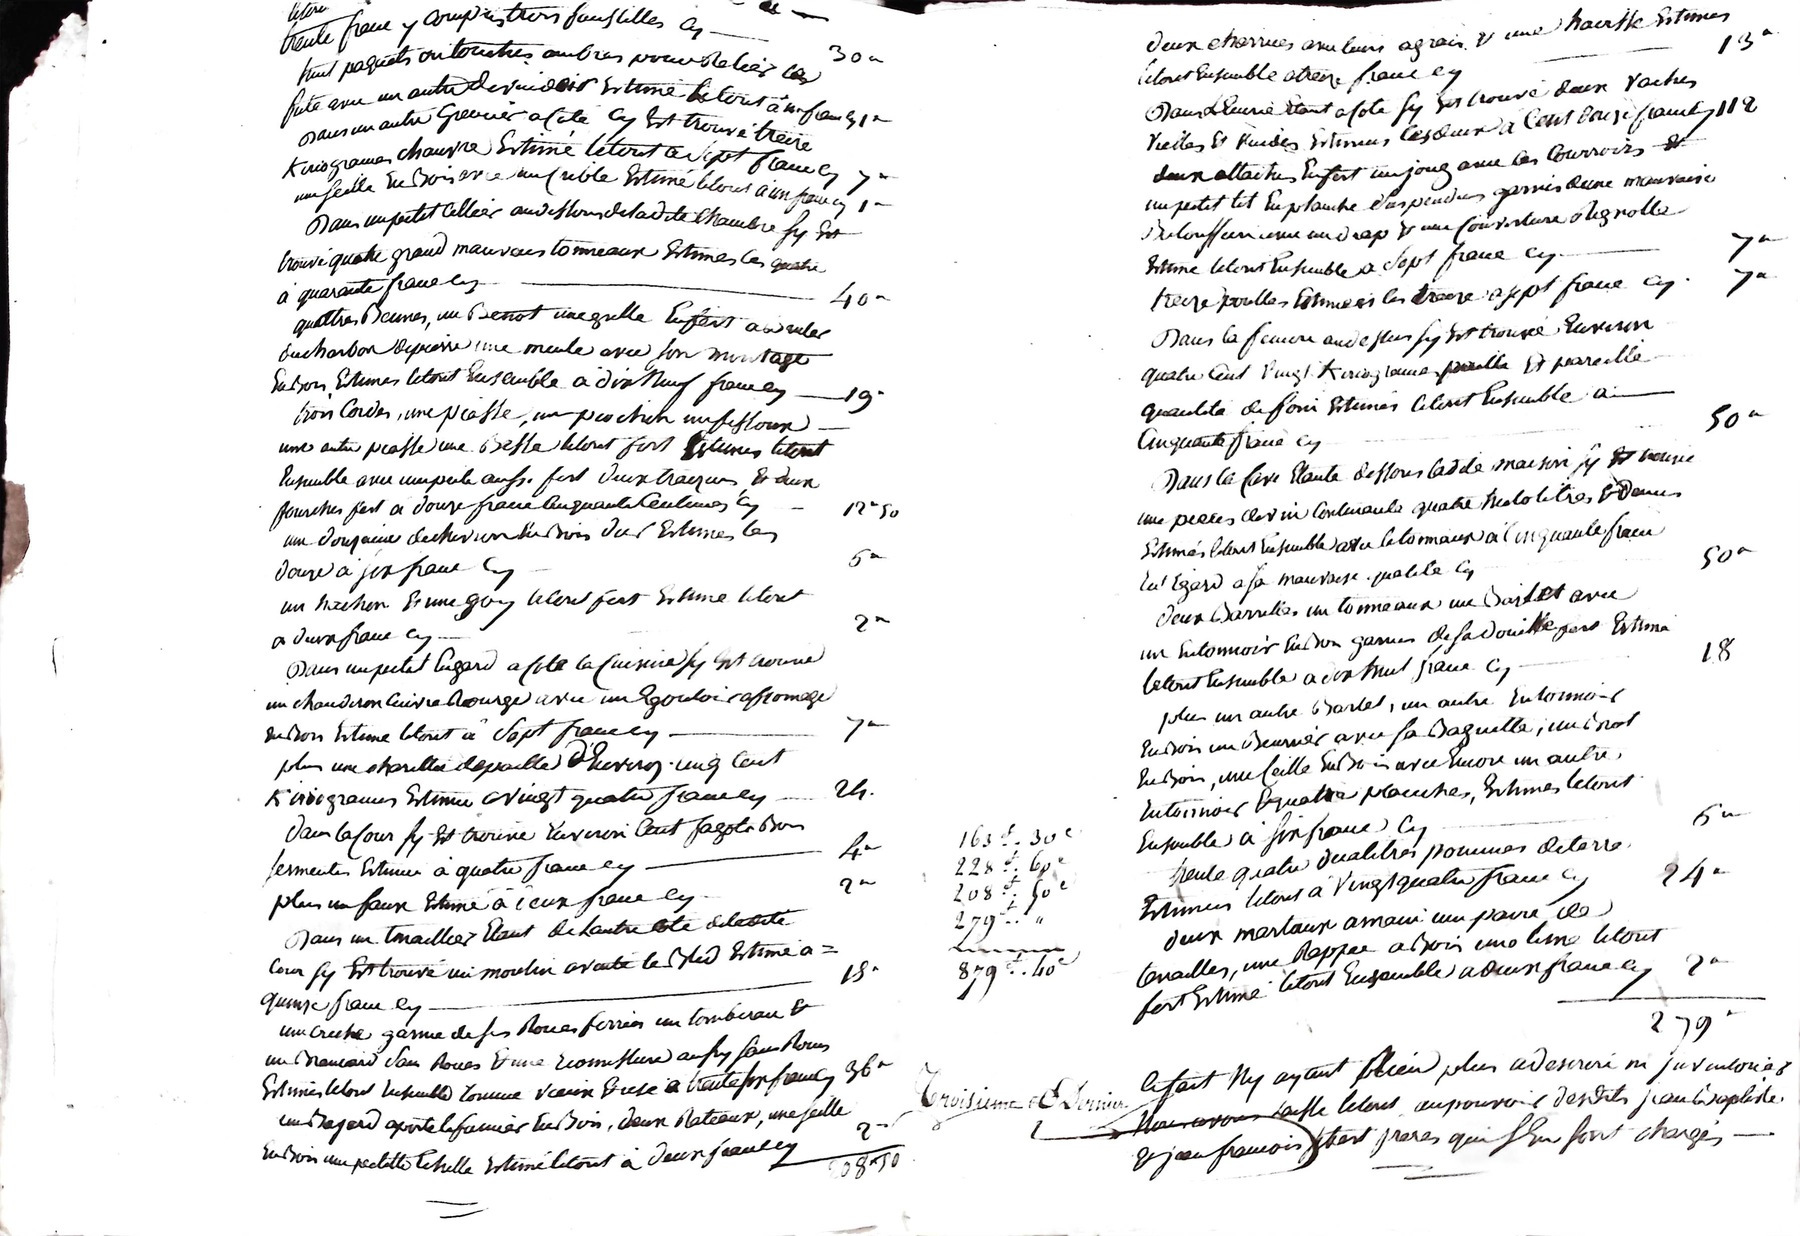 letout
trente franc y compris trois faussilles cy 30 "
huit paquets ou autres pour Relier les
fute avec un autre devidoir Estimé letout à un franc cy 1 "
Dans un autre Grenier a Coté Cy Est trouvé treize
Kiriogrames chanvre Estimé letout a Sept franc cy 7 "
une seille En Bois avec un Crible Estimé letout a un franc cy 1 "
Dans un petit Cellier audessous de ladite Chambre Sy Est
trouvé quatre grand mauvais tonneaux Estimes les quatre
à quarante franc cy 40 "
quattres Bennes, un Benot une grille En fert a Bruler
du charbon de pierre une meule avec Son montage
En Bois Estimes letout Ensemble à dix Neuf franc cy 19 "
trois Cordes, une piosse, un piochon un fessoux
une autre piosse une Besse letout fert Estimes letout
Ensemble avec une pele aussi fert deux tranches Et deux
fourches fert a douze franc Cinquante Centimes Cy 12 " 50
un douzaine de chevron En Bois dur Estimes les
douze à six franc Cy 6 "
un hachon Et une goy letout fert Estime letout
a deux franc cy 2 "
Dans un petit Engard a Coté la Cuisine Sy Est trouvé
un chaudron Cuivre Rouge avec un Egoutoir a fromage
En Bois Estimé letout à Sept franc cy 7 "
plus une de paille D'Environ cinq Cent
Kiriogrames Estimée a Vingt quatre franc cy 24.
Dans la Cour Sy Est trouvé Environ Cent fagots Bois
sermentes Estimés à quatre franc cy 4 "
plus un faux Estimé à deux franc cy 2 "
Dans un Tenaillier Etant de Lautre Coté de ladite
Cour Sy Est trouvé un moulin avente le Bled Estimé a =
quinze franc cy 15 "
une garnie de ses Roues ferrées un tombereau Et
un Brancard San Roues Et une aussy Sans Roues
Estimés letout Ensemble Comme vieux Et usé a trente six franc cy 36 "
un Bayard aporte le fumier En Bois, deux Rateaux, une seille
En Bois une petitte Echelle Estimé letout à deux franc cy 2 "
208 " 50
163 f. 30 c
228 f. 60 c
208 f. 50 c
279 f. "
879 f. 40 c
Troisieme & Dernier
deux charrues avec leurs agrais & une haersse Estimes
letout Ensemble atreize franc cy 13 "
Dans LEcurie Etant a Coté Sy Est trouvé deux Vaches
Vieilles Et Vuides Estimées les deux a Cent douze franc cy 112
deux attaches En fert un joug avec les Courroies Et
un petit lit En planche Suspendus garnis dune mauvaise
avec un drap Et une Couverture detignolle
Estimé letout Ensemble a Sept franc cy 7 "
treize poulles Estimées les treize a Sept franc cy 7 "
Dans la feniere audessus Sy Est trouvé Environ
quatre Cent Vingt Kiriogrames paille Et pareille
quantité de foin Estimés letout Ensemble à
Cinquante franc cy 50 "
Dans la Cave Etante dessous ladite maison Sy Est trouvé
une pieces de vin Contenante quatre hectolitres Et Demis
Estimés letout Ensemble avec le tonneaux a Cinquante franc
Eut Egard a Sa mauvaise qualité Cy 50 "
deux Barrilles un tonneaux un Barlet avec
un Entonnoir En Bois garnis de Sa douille fert Estimé
letout Ensemble a dix huit franc Cy 18
plus un autre Barlet, un autre Entonnoir
En Bois un Beurrier avec Sa Baguette, un Brot
En Bois, une Seille En Bois avec Encore un autre
Entonnoir Et quatre planches, Estimes letout
Ensemble à Six franc Cy 6 "
trente quatre dealitres pommes de terre
Estimées letout à Vingt quatre franc cy 24 "
deux martaux amain une paire de
tenailles, une Rappee a Bois une lime letout
fert Estimé letout Ensemble a deux franc cy 2 "
279 "
Ce fait Ny ayant Rien plus a descrire ni jnventorier
Nous avons laissé letout au pouvoir desdits jean Baptiste
& jean francois frères qui S'En sont chargés